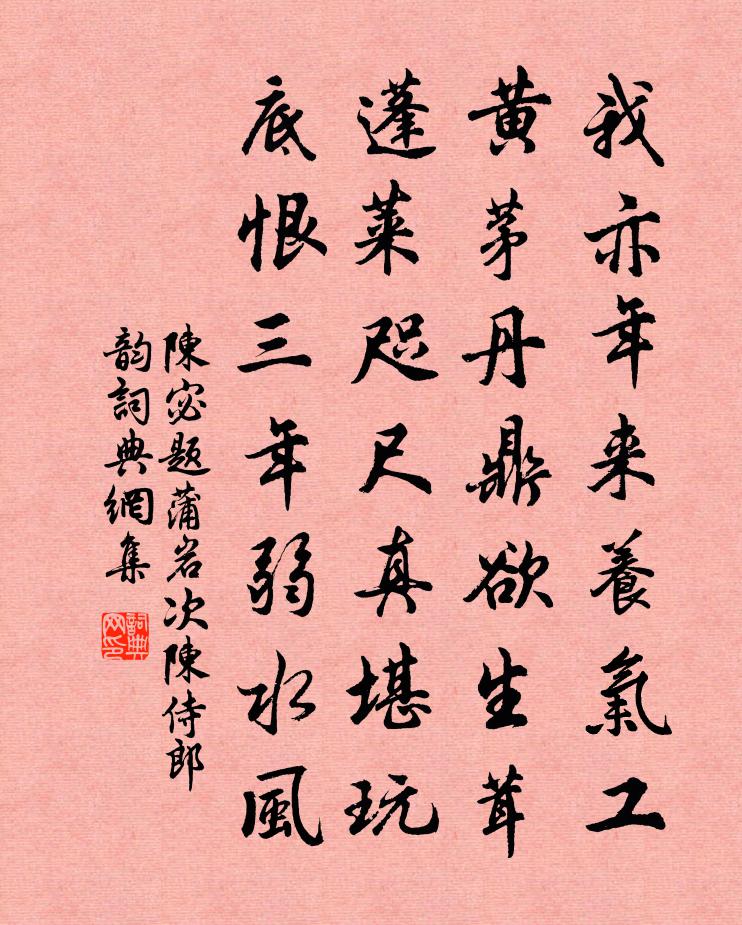 我亦年来養氣工
黄茅丹鼎欲生茸
蓬莱咫尺真堪玩
底恨三年弱水風
陳宓题蒲岩次陳侍郎
韵詞典網集
詞典網印